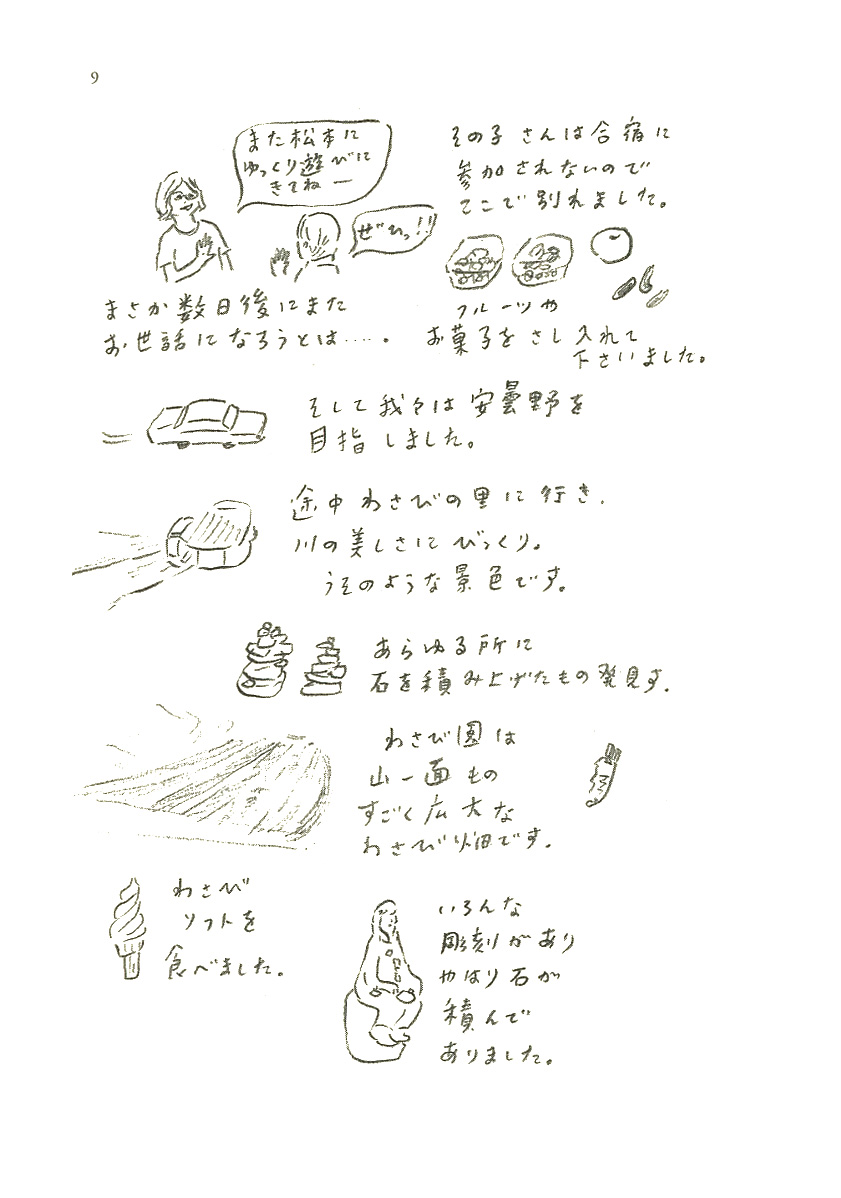 9
また松本に
ゆっくり遊びに
きてねー
ぜひっ!!
その子さんは合宿に
参加されないので
ここで別れました。
まさか数日後にまた
お世話になろうとは……。
フルーツや
お菓子をさし入れて
下さいました。
そして我々は安曇野を
目指しました。
途中わさびの里に行き、
川の美しさにびっくり。
うそのような景色です。
あらゆる所に
石を積み上げたもの発見す。
わさび園は
山一面もの
すごく広大な
わさび畑です。
わさび
ソフトを
食べました。
いろんな
彫刻があり
やはり石が
積んで
ありました。